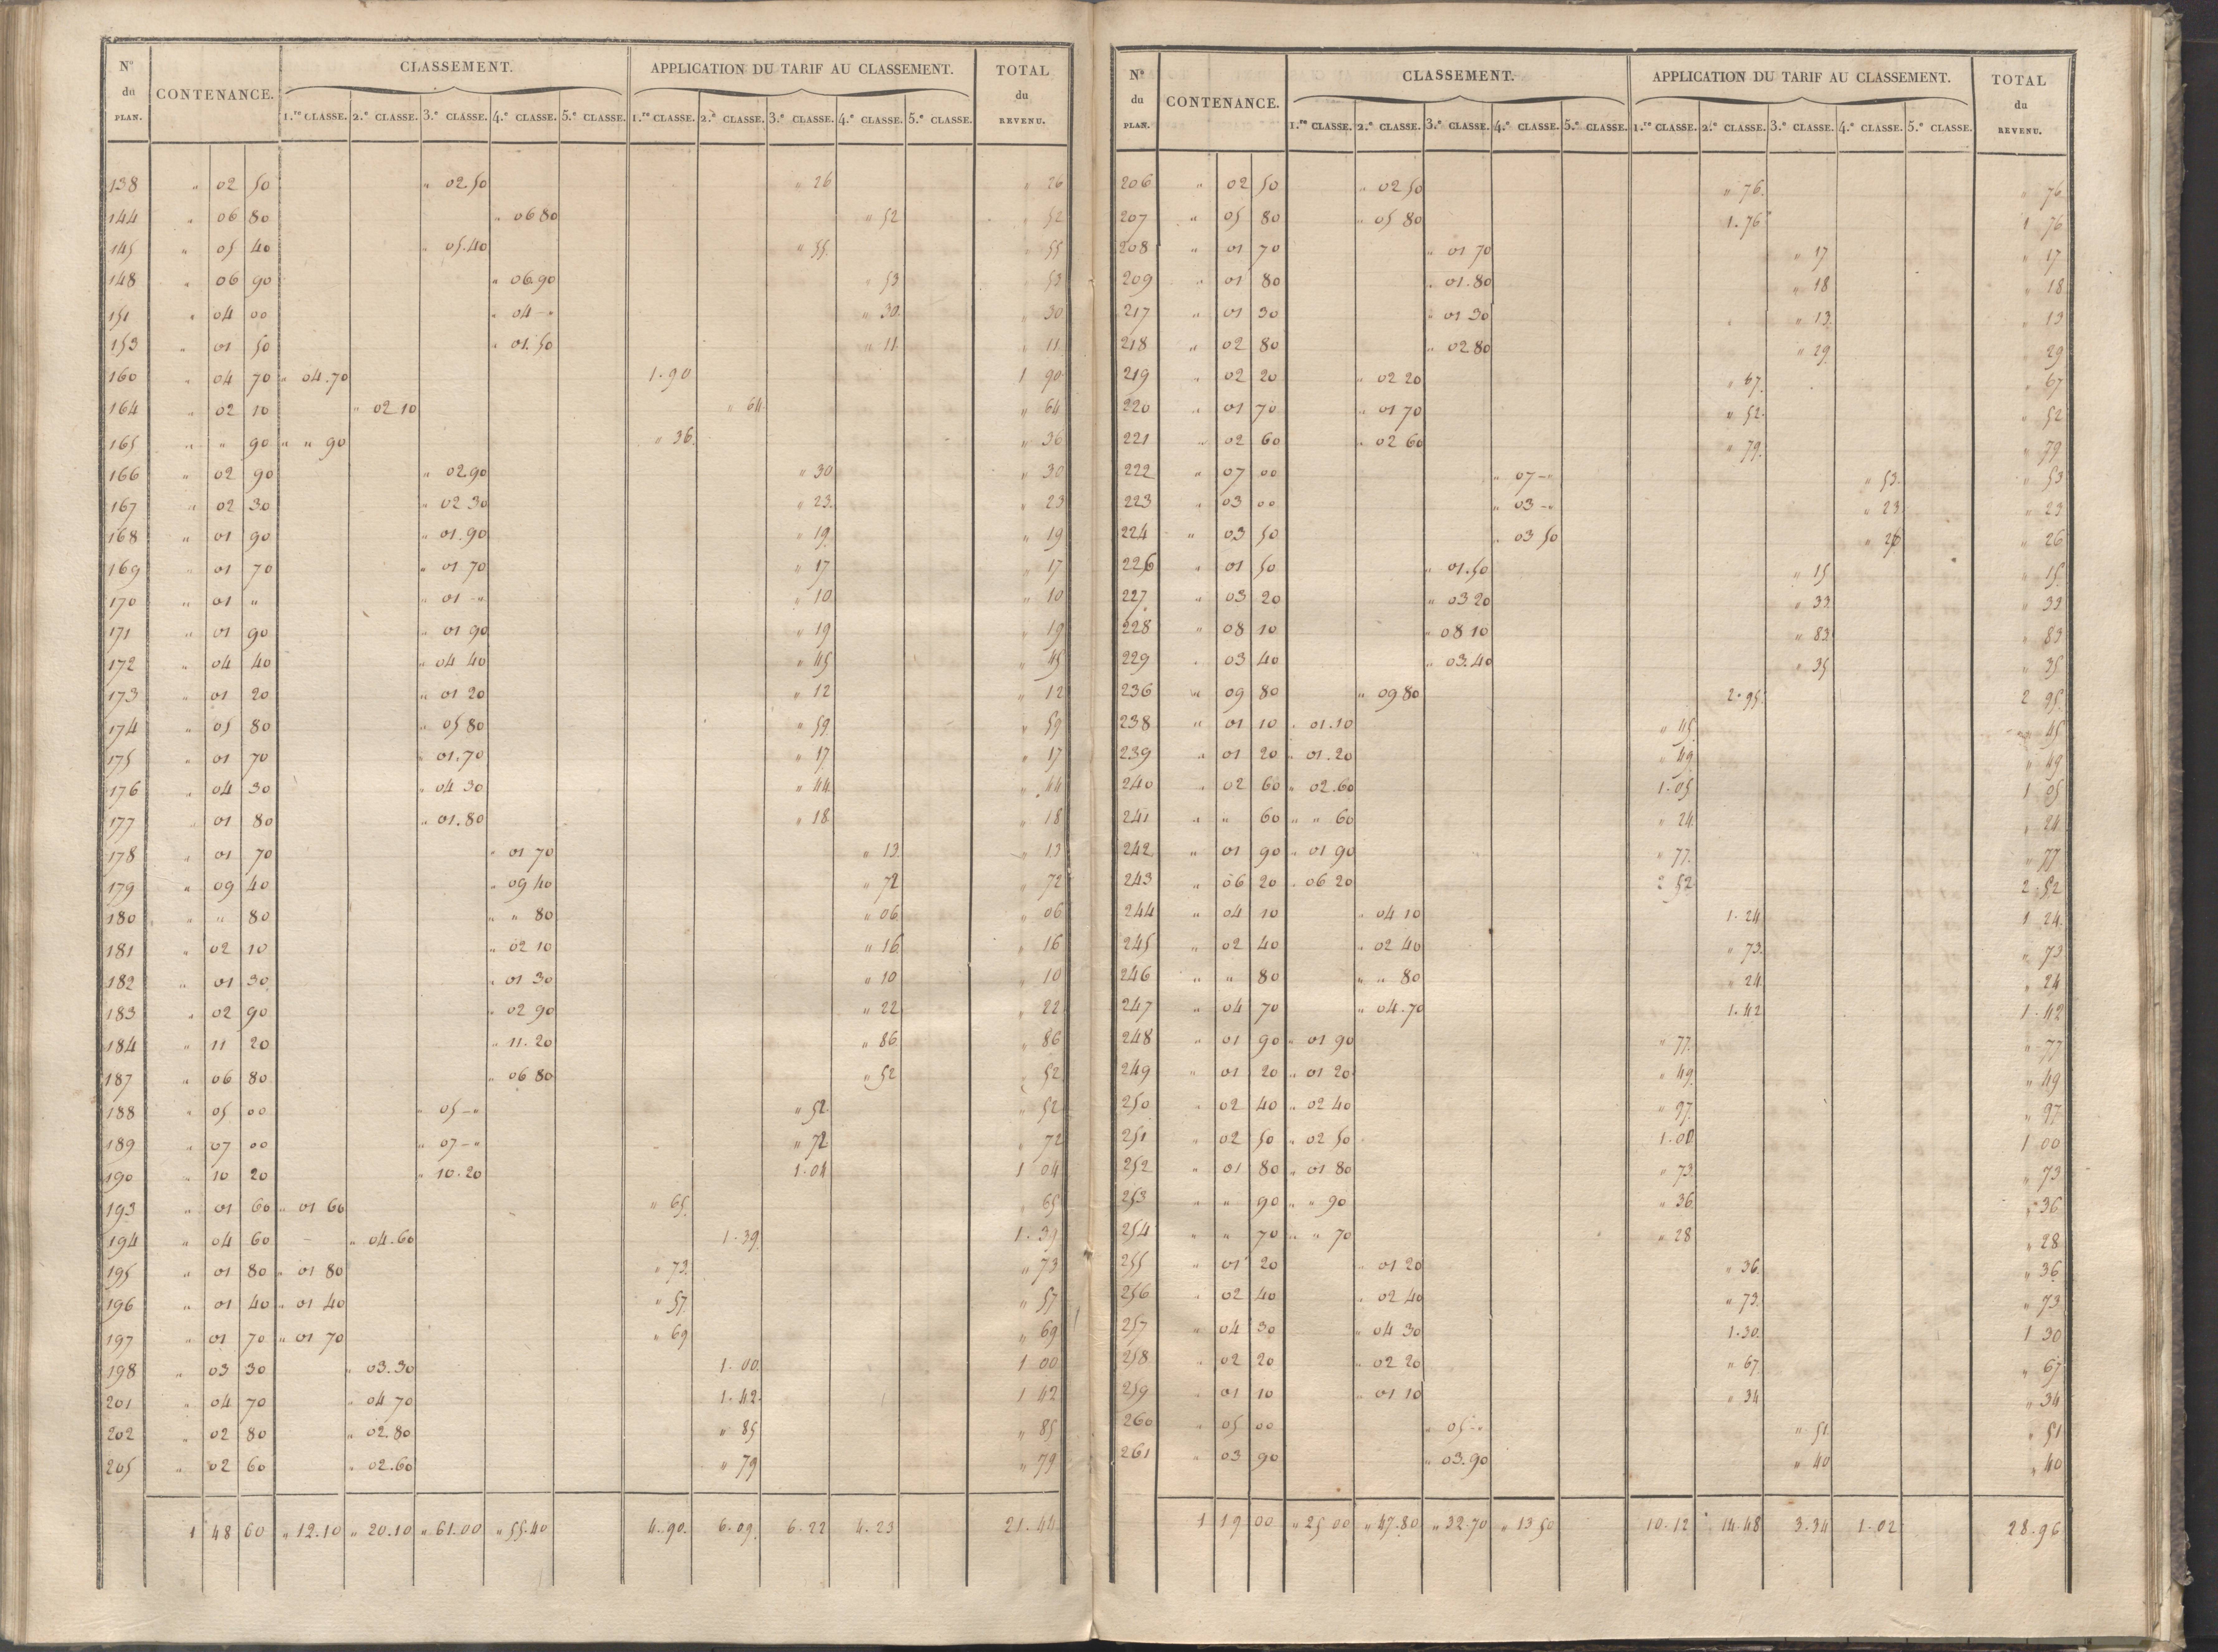 N° du PLAN. CONTENANCE. CLASSEMENT. APPLICATION DU TARIF AU CLASSEMENT. TOTAL du REVENU.
1.re CLASSE. 2.e CLASSE. 3.e CLASSE. 4.e CLASSE. 5.e CLASSE. 1.re CLASSE. 2.e CLASSE. 3.e CLASSE. 4.e CLASSE. 5.e CLASSE.
138 " 02 50 " 02.50 " 26 " 26
144 " 06 80 " 06 80 " 52 " 52
145 " 05 40 " 05.40 " 55 " 55
148 " 06 90 " 06.90 " 53 " 53
151 " 04 00 " 04 -" " 30 " 30
153 " 01 50 " 01.50 " 11 " 11
160 " 04 70 " 04.70 1.90 1 90
164 " 02 10 " 02 10 " 64 " 64
165 " " 90 " " 90 " 36 " 36
166 " 02 90 " 02.90 " 30 " 30
167 " 02 30 " 02 30 " 23 " 23
168 " 01 90 " 01.90 " 19 " 19
169 " 01 70 " 01 70 " 17 " 17
170 " 01 " " 01 -" " 10 " 10
171 " 01 90 " 01 90 " 19 " 19
172 " 04 40 " 04 40 " 45 " 45
173 " 01 20 " 01 20 " 12 " 12
174 " 05 80 " 05 80 " 59 " 59
175 " 01 70 " 01.70 " 17 " 17
176 " 04 30 " 04 30 " 44 " 44
177 " 01 80 " 01.80 " 18 " 18
178 " 01 70 " 01 70 " 13 " 13
179 " 09 40 " 09 40 " 72 " 72
180 " " 80 " " 80 " 06 " 06
181 " 02 10 " 02 10 " 16 " 16
182 " 01 30 " 01 30 " 10 " 10
183 " 02 90 " 02 90 " 22 " 22
184 " 11 20 " 11.20 " 86 " 86
187 " 06 80 " 06 80 " 52 " 52
188 " 05 00 " 05 -" " 52 " 52
189 " 07 00 " 07 -" " 72 " 72
190 " 10 20 " 10.20 1.04 1 04
193 " 01 60 " 01 60 " 65 " 65
194 " 04 60 " 04.60 1.39 1.39
195 " 01 80 " 01 80 " 73 " 73
196 " 01 40 " 01 40 " 57 " 57
197 " 01 70 " 01 70 " 69 " 69
198 " 03 30 " 03.30 1.00 1 00
201 " 04 70 " 04 70 1.42 1 42
202 " 02 80 " 02.80 " 85 " 85
205 " 02 60 " 02.60 " 79 " 79
1 48 60 " 12.10 " 20.10 " 61.00 " 55.40 4.90 6.09 6.22 4.23 21.44
N° du PLAN. CONTENANCE. CLASSEMENT. APPLICATION DU TARIF AU CLASSEMENT. TOTAL du REVENU.
1.re CLASSE. 2.e CLASSE. 3.e CLASSE. 4.e CLASSE. 5.e CLASSE. 1.re CLASSE. 2.e CLASSE. 3.e CLASSE. 4.e CLASSE. 5.e CLASSE.
206 " 02 50 " 02 50 " 76 " 76
207 " 05 80 " 05 80 1.76 1 76
208 " 01 70 " 01 70 " 17 " 17
209 " 01 80 " 01.80 " 18 " 18
217 " 01 30 " 01 30 " 13 " 13
218 " 02 80 " 02 80 " 29 29
219 " 02 20 " 02 20 " 67 " 67
220 " 01 70 " 01 70 " 52 " 52
221 " 02 60 " 02 60 " 79 " 79
222 " 07 00 " 07 -" " 53 " 53
223 " 03 00 " 03 -" " 23 " 23
224 " 03 50 " 03 50 " 26 " 26
226 " 01 50 " 01.50 " 15 " 15
227 " 03 20 " 03 20 " 33 " 33
228 " 08 10 " 08 10 " 83 " 83
229 " 03 40 " 03.40 " 35 " 35
236 " 09 80 " 09 80 2.95 2 95
238 " 01 10 " 01.10 " 45 " 45
239 " 01 20 " 01.20 " 49 " 49
240 " 02 60 " 02.60 1.05 1 05
241 " " 60 " " 60 " 24 " 24
242 " 01 90 " 01 90 " 77 " 77
243 " 06 20 " 06 20 2 52 2.52
244 " 04 10 " 04 10 1.24 1 24
245 " 02 40 " 02 40 " 73 " 73
246 " " 80 " " 80 " 24 " 24
247 " 04 70 " 04.70 1.42 1.42
248 " 01 90 " 01 90 " 77 " 77
249 " 01 20 " 01 20 " 49 " 49
250 " 02 40 " 02 40 " 97 " 97
251 " 02 50 " 02 50 1.00 1 00
252 " 01 80 " 01 80 " 73 " 73
253 " " 90 " " 90 " 36 " 36
254 " " 70 " " 70 " 28 " 28
255 " 01 20 " 01 20 " 36 " 36
256 " 02 40 " 02 40 " 73 " 73
257 " 04 30 " 04 30 1.30 1 30
258 " 02 20 " 02 20 " 67 " 67
259 " 01 10 " 01 10 " 34 " 34
260 " 05 00 " 05 -" " 51 " 51
261 " 03 90 " 03.90 " 40 " 40
1 19 00 " 25.00 " 47.80 " 32.70 " 13 50 10.12 14.48 3.34 1.02 28.96